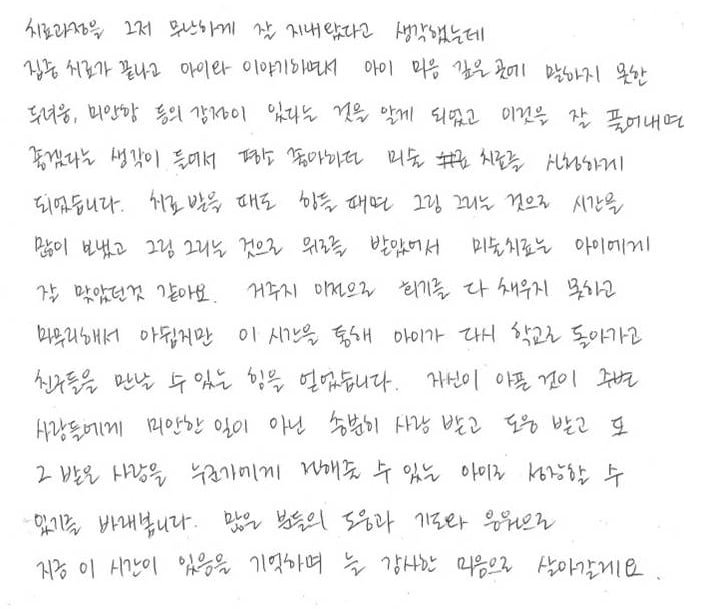 치료과정을 그저 무난하게 잘 지내왔다고 생각했는데
집중 치료가 끝나고 아이와 이야기하면서 아이 마음 깊은 곳에 말하지 못한
두려움, 미안함 등의 감정이 있다는 것을 알게 되었고 이것을 잘 풀어내면
좋겠다는 생각이 들어서 평소 좋아하던 미술 치료를 신청하게
되었습니다. 치료 받을 때도 힘들 때면 그림 그리는 것으로 시간을
많이 보냈고 그림 그리는 것으로 위로를 받았어서 미술치료는 아이에게
잘 맞았던것 같아요. 거주지 이전으로 회기를 다 채우지 못하고
마무리해서 아쉽지만 이 시간을 통해 아이가 다시 학교로 돌아가고
친구들을 만날 수 있는 힘을 얻었습니다. 자신이 아픈 것이 주변
사람들에게 미안한 일이 아닌 충분히 사랑 받고 도움 받고 또
그 받은 사랑을 누군가에게 전해줄 수 있는 아이로 성장할 수
있기를 바래봅니다. 많은 분들의 도움과 기도와 응원으로
지금 이 시간이 있음을 기억하며 늘 감사한 마음으로 살아갈게요.